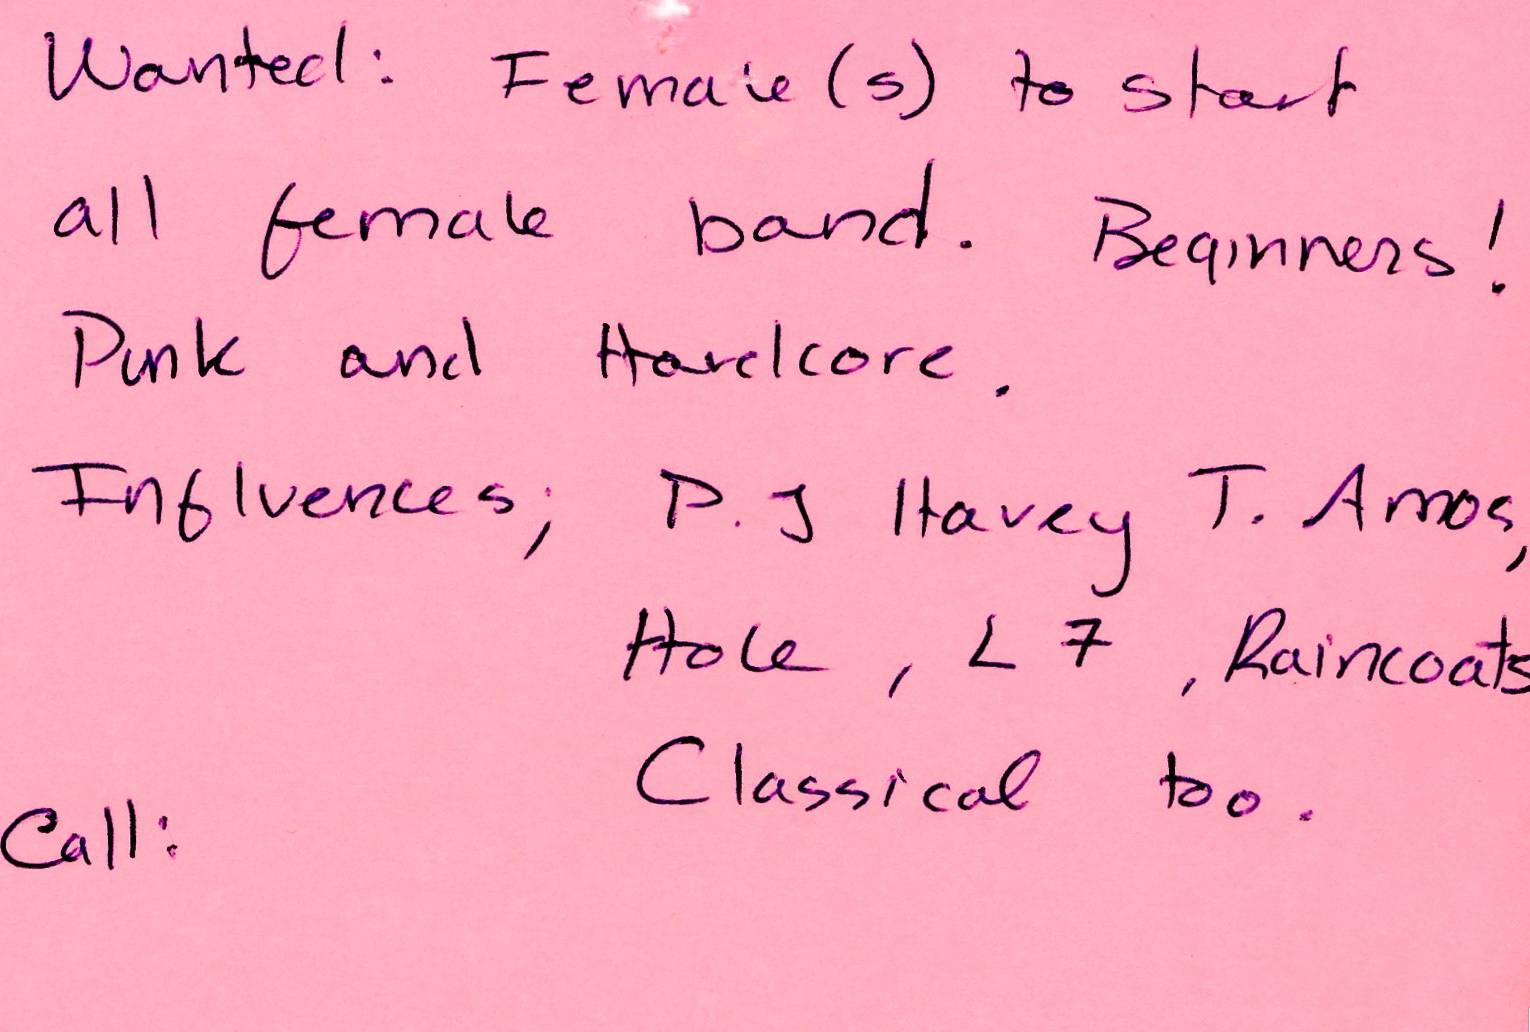 Wanted: Female(s) to start
all female band. Beginners!
Punk and Hardcore.
Influences; P.J Havey T. Amos,
Hole, L7, Raincoats
Classical too.
Call: